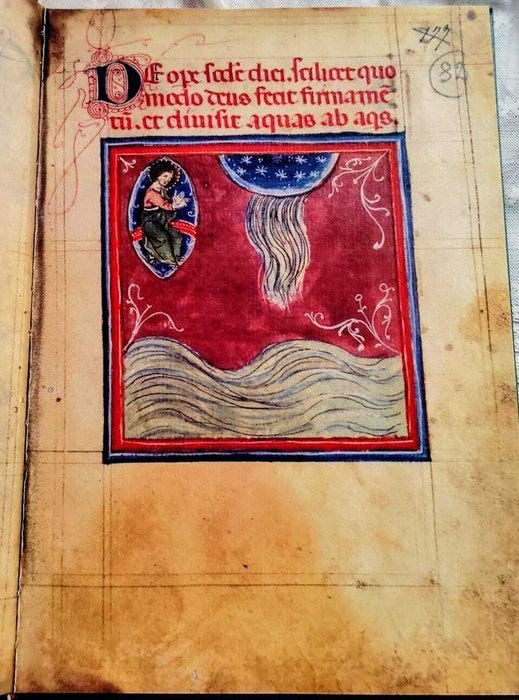 82
DE ope scd̄e diei. scilicet quo
modo deus fecit firmamē
tū. et diuisit aquas ab aqs.